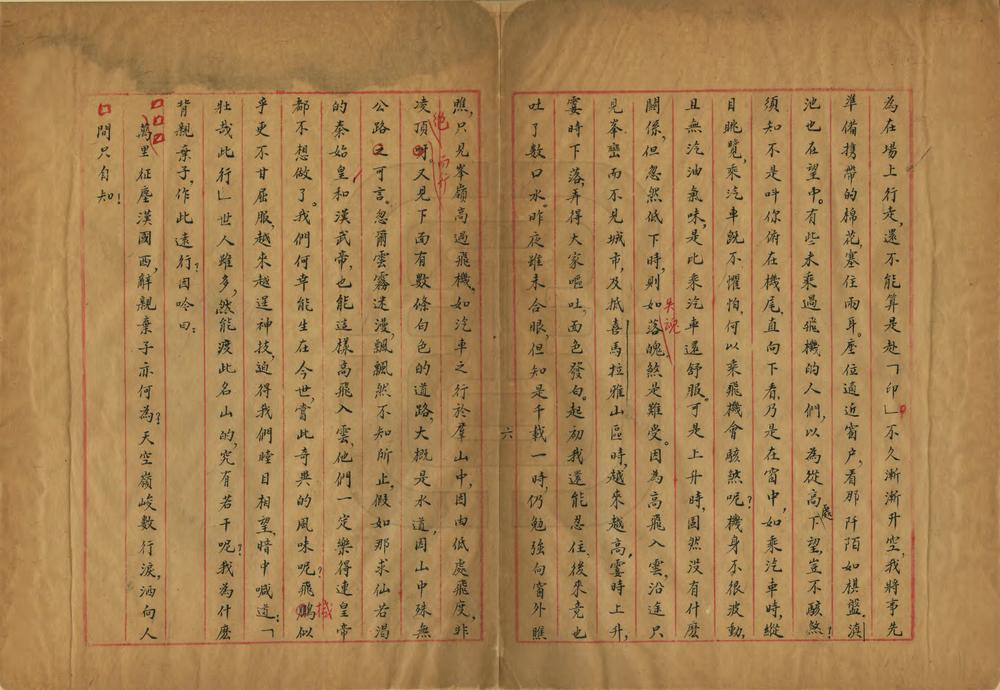 為在場上行走，還不能算是赴「印」。不久漸漸升空，我將事先
準備携帶的棉花，塞住兩耳。座位適近窗户，看那阡陌如棋盤，滇
池也在望中。有些未乘過飛機的人們，以為從高處下望，豈不駭煞！
須知不是叫你俯在機尾，直向下看，乃是在窗中，如乘汽車時，縱
目眺覽，乘汽車既不懼怕，何以乘飛機會駭煞呢？機身不很波動，
且無汽油氣味，是比乘汽車還舒服。可是上升時，固然没有什麽
關係，但忽然低下時，則如失魂落魄，煞是難受。因為高飛入雲，沿途只
見峯巒而不見城市，及抵喜馬拉雅山區時，越來越高，霎時上升，
霎時下落，弄得大家嘔吐，面色發白。起初我還能忍住，後來竟也
吐了數口水。昨夜雖未合眼，但知是千載一時，仍勉強向窗外瞧
六
瞧，只見峯嶺高過飛機，如汽車之行於羣山中，因由低處飛度，非
凌絕頂而升。又見下面有數條白色的道路，大概是水道，因山中殊無
公路之可言。忽爾雲霧迷漫，飄飄然不知所止，假如那求仙若渴
的秦始皇和漢武帝，也能這樣高飛入雲，他們一定樂得連皇帝
都不想做了。我們何幸能生在今世，嘗此奇異的風味呢？飛機似
乎更不甘屈服，越來越逞神技，迫得我們瞠目相望，暗中喊道：「
壯哉此行」世人雖多，然能渡此名山的，究有若干呢？我為什麽
背親棄子，作此遠行？因吟曰：
萬里征塵漢國西，辭親棄子亦何為？天空嶺峻數行淚，洒向人
間只自知！